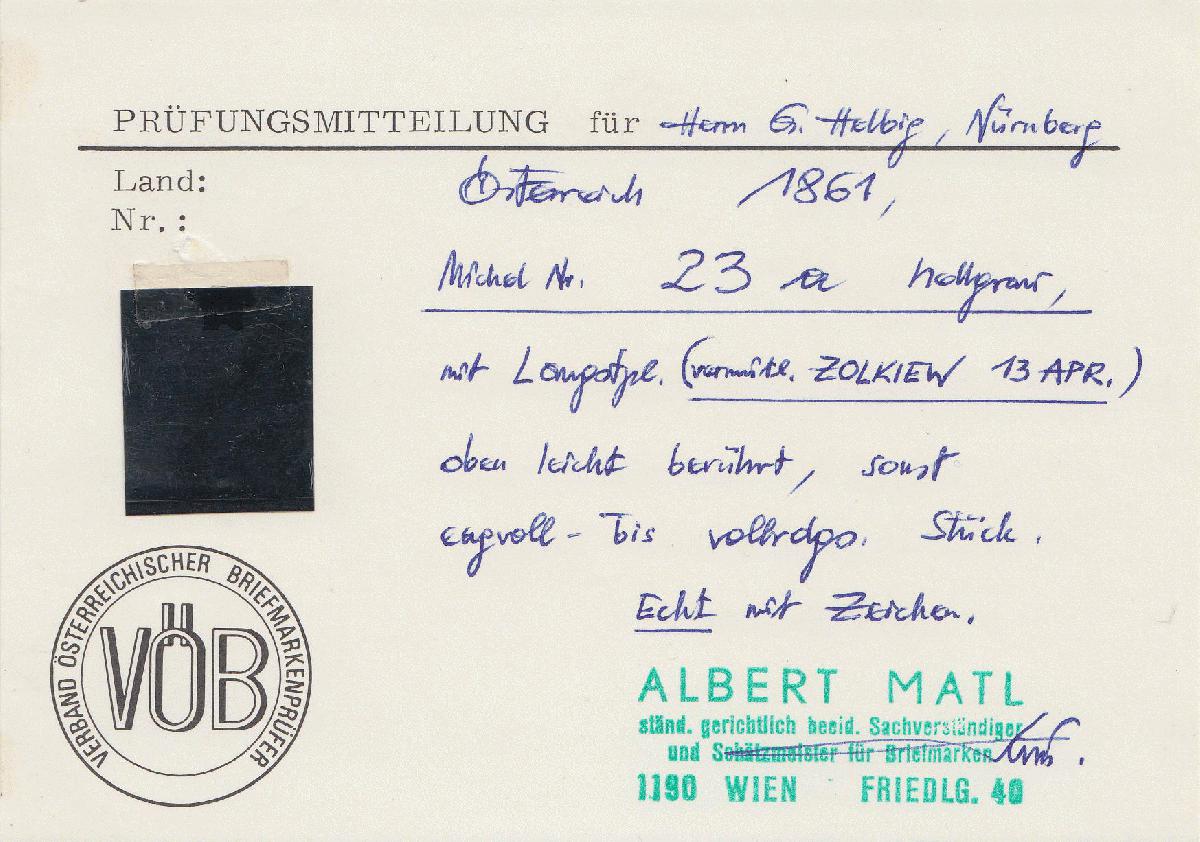 PRÜFUNGSMITTEILUNG für Herrn G. Helbig, Nürnberg
Land: Österreich 1861,
Nr.:
Michel Nr. 23 a hellgrau,
mit Langstpl. (vermutl. ZOLKIEW 13 APR.)
oben leicht berührt, sonst
engvoll- bis vollrdgs. Stück.
Echt mit Zeichen.
VERBAND ÖSTERREICHISCHER BRIEFMARKENPRÜFER
VÖB
ALBERT MATL
ständ. gerichtlich beeid. Sachverständiger
und Schätzmeister für Briefmarken
1190 WIEN FRIEDLG. 40